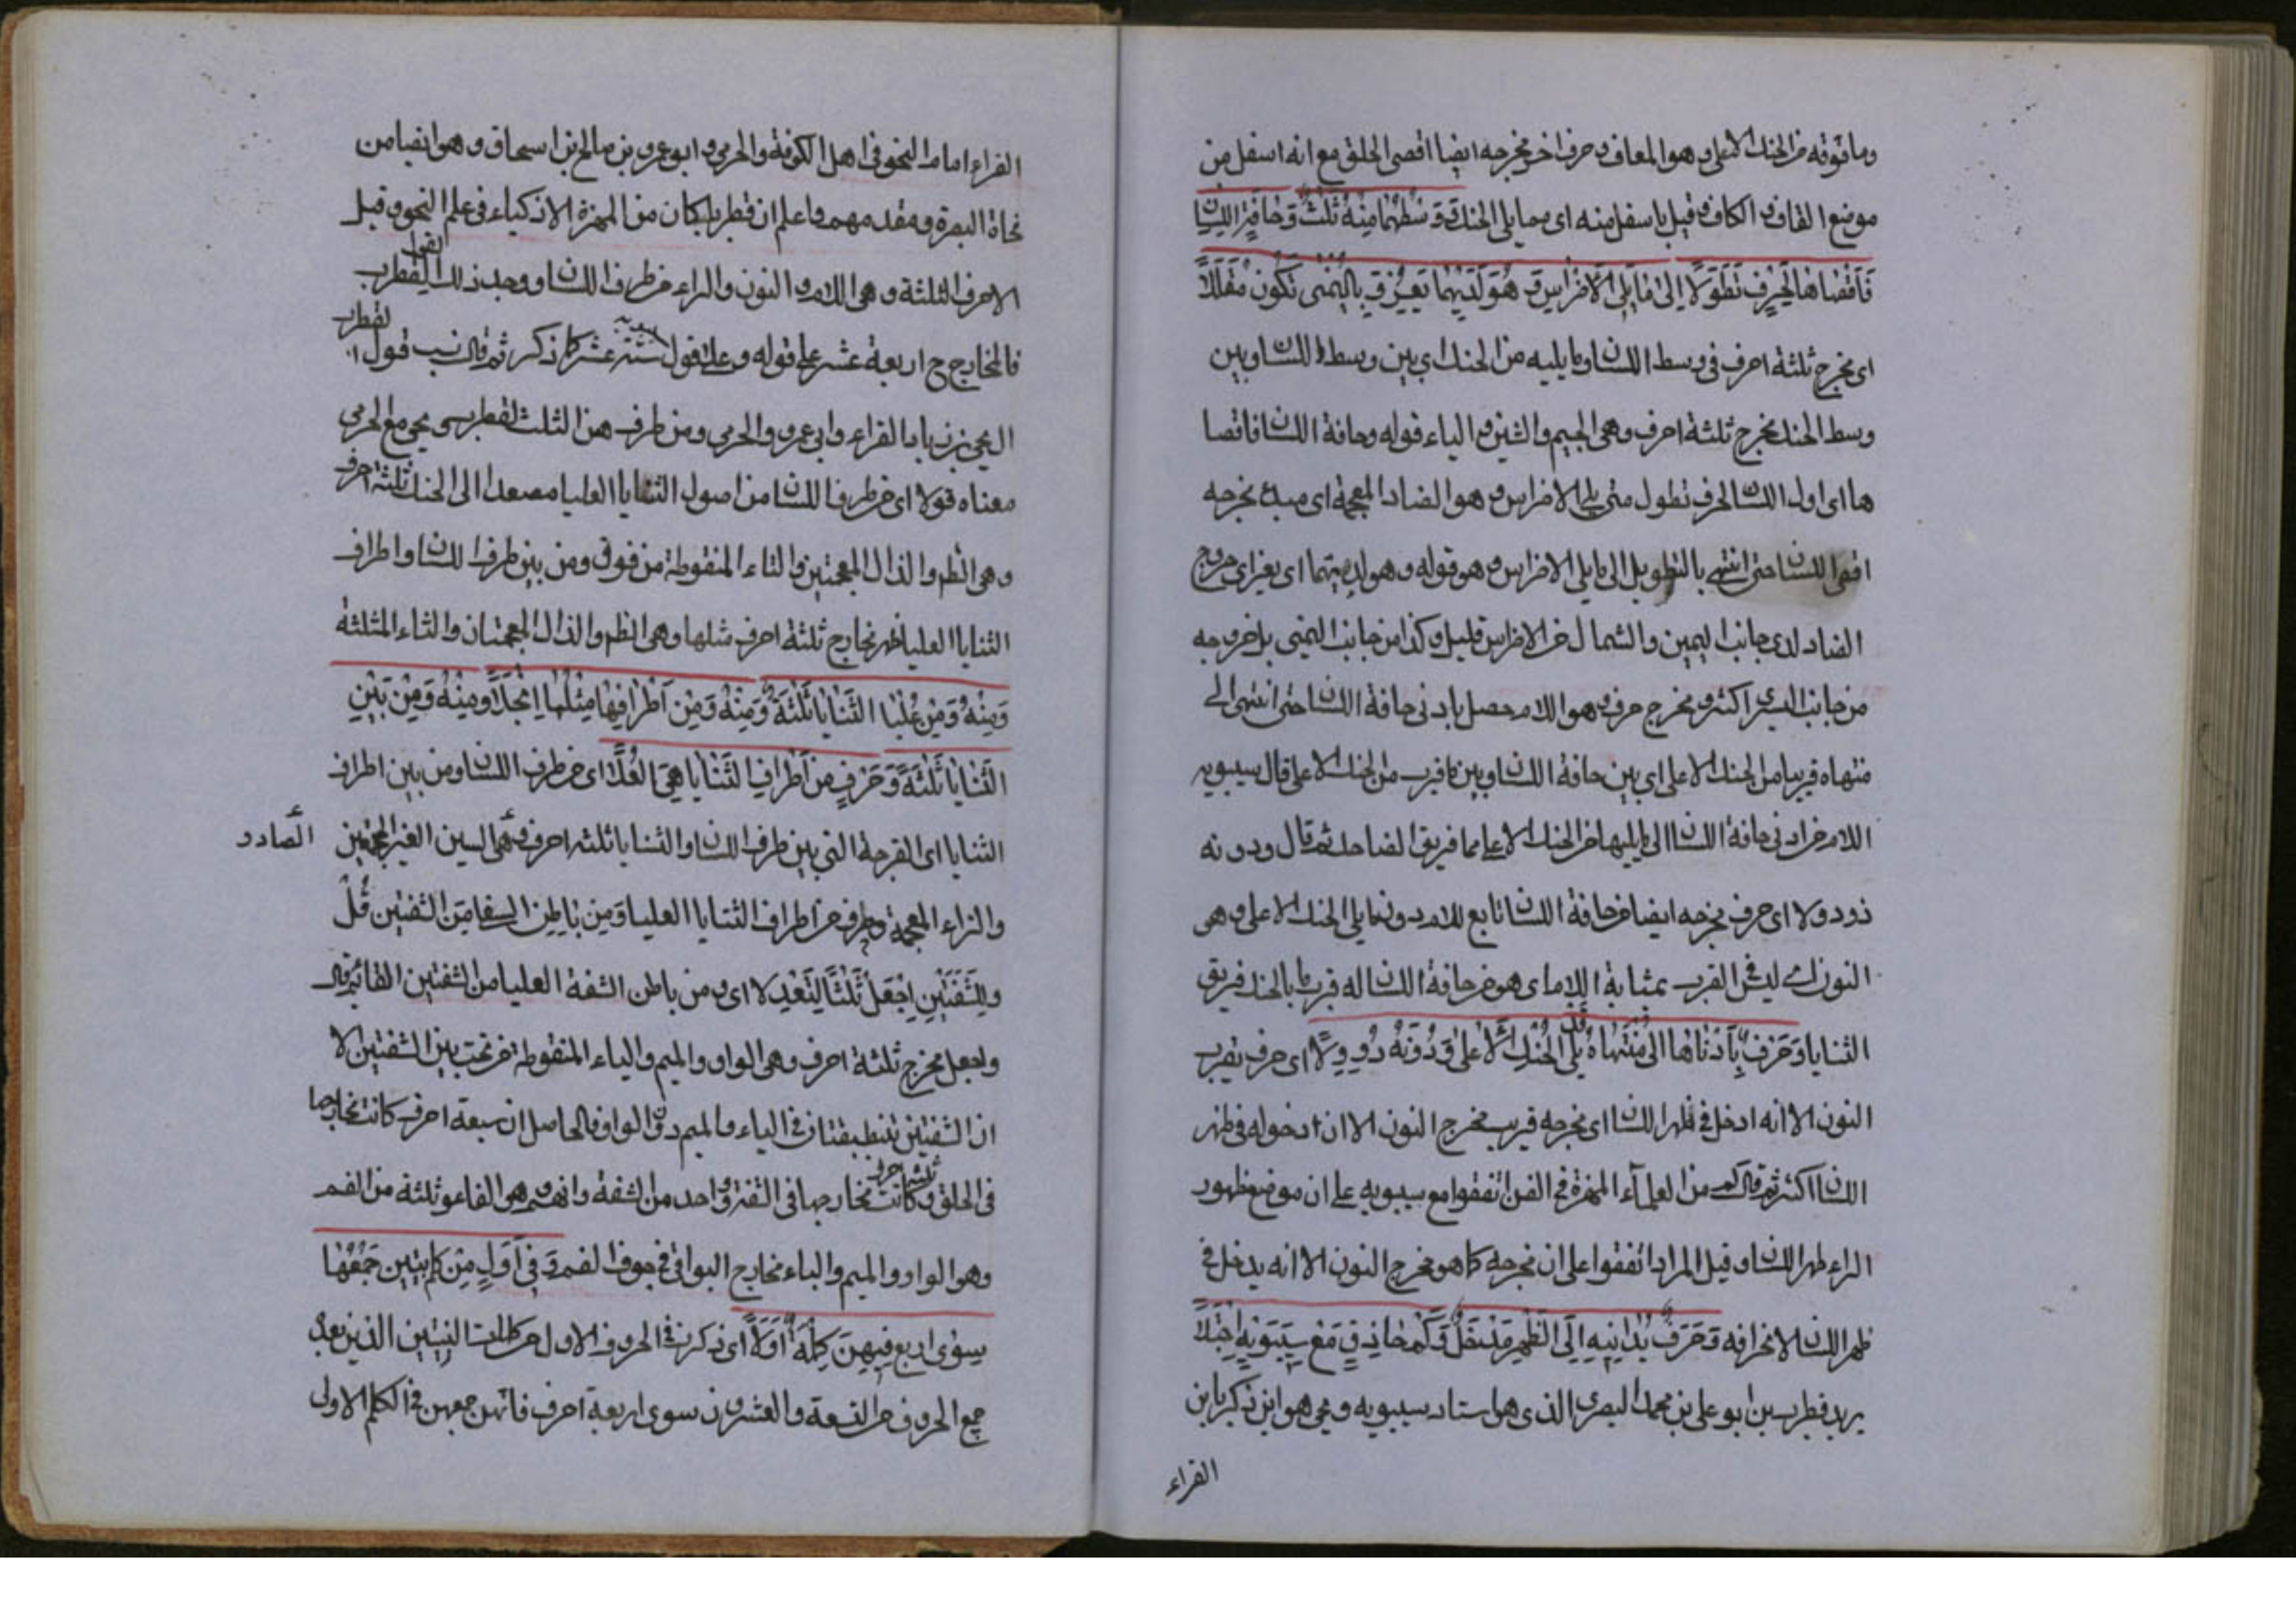 وما فوقه من الحنك الاعلى وهو المعاف وحرف اخر مخرجه ايضا اقصى الحلق مع انه اسفل من
موضع القاف الكاف وقيل باسفل منه اى مما يلى الحنك وَوَسْطُهُمَا مِنْهُ ثَلٰثٌ وَحَافَةِ اللِّسَانِ
فَاَقْصَاهَا لِحَرْفٍ تَطَوَّلًا اِلٰى مَا يَلِى الْاَضْرَاسَ وَهُوَ لَدَيْهِمَا يَعِزُّ وَبِالْيُمْنٰى تَكُونُ مُقَلَّلًا
اى مخرج ثلثة احرف فى وسط اللسان وما يليه من الحنك اى بين وسط اللسان وبين
وسط الحنك مخرج ثلثة احرف وهى الجيم والشين والياء قوله وحافة اللسان فاقصا
ها اى اول اللسان لحرف تطول حتى يلى الاضراس وهو الضاد المعجمة اى مبدء مخرجه
اقصى اللسان حتى انتهى بالتطويل الى ما يلى الاضراس وهو قوله وهو لديهما اى يعز اى خروج
الضاد لدى جانب اليمين والشمال من الاضراس قليل وكذا من جانب اليمنى بل خروجه
من جانب اليسرى اكثر ومخرج حرف وهو اللام حصل بادنى حافة اللسان حتى انتهى الى
منتهاه قريبا من الحنك الاعلى اى بين حافة اللسان وبين ما قرب من الحنك الاعلى قال سيبويه
اللام من ادنى حافة اللسان الى ما يليها من الحنك الاعلى مما فويق الضاحك ثم قال ودونه
ذو ولا اى حرف مخرجه ايضا من حافة اللسان تابع للام دونما يلى الحنك الاعلى وهى
النون اى ليس فى القرب بمثابة اللام اى هو من حافة اللسان له قرب ما بالحنك فويق
الثنايا وَحَرْفٌ بِاَدْنَاهَا اِلٰى مُنْتَهَاهُ قَدْ يَلِى الْحَنَكَ الْاَعْلٰى وَدُوْنَهُ ذُو وِلَا اى حرف يقرب
النون الا انه ادخل فى ظهر اللسان اى مخرجه قريب مخرج النون الا ان ادخوله فى ظهر
اللسان اكثر ثم قال كم من العلمآء المهرة فى الفن اتفقوا مع سيبويه على ان موضع ظهور
الراء ظهر اللسان وقيل المراد اتفقوا على ان مخرجه كما هو مخرج النون الا انه يدخل فى
ظهر اللسان لانحرافه وَحَرْفٌ يُدَانِيهِ اِلَى الظَّهْرِ مَدْخَلٌ وَكَمْ حَاذِقٍ مَعْ سِيبَوَيْهِ اجْتَلَا
يريد قطرب بن ابو على بن محمد البصرى الذى هو استاد سيبويه ويحى هو ابن زكريا بن
الفراء
الفراء امام النحو فى اهل الكوفة والجرمى وابو عمرو بن صالح بن اسحاق وهو ايضا من
نحاة البصرة ومقدمهم واعلم ان قطربا كان من المهرة الاذكياء فى علم النحو وقيل
الاحرف الثلثة وهى اللام والنون والراء من طرف اللسان ووجد ذلك القول لقطرب
فالمخارج ح اربعة عشر على قوله وعلى قول سيبويه ستة عشر كما ذكر ثم قال نسب قول لقطرب
اليحيى بن زياد الفراء وابى عمرو والجرمى ومن طرف هن الثلث لقطرب ويحيى مع الجرمى
معناه قولا اى من طرف اللسان من اصول الثنايا العليا مصعدا الى الحنك ثلثة احرف
وهى الظر والذال المعجمتين والتاء المنقوطة من فوق ومن بين طرف اللسان واطراف
الثنايا العليا ظهر مخارج ثلثة احرف مثلها وهى الظر والذال المعجمتان والثاء المثلثة
وَمِنْهُ وَمِنْ عُلْيَا الثَّنَايَا ثَلٰثَةٌ وَمِنْهُ وَمِنْ اَطْرَافِهَا مِثْلُهَا انْجَلَا وَمِنْهُ وَمِنْ بَيْنِ
الثَّنَايَا ثَلٰثَةٌ وَحَرْفٍ مِنْ اَطْرَافِ الثَّنَايَا هِىَ الْعُلَا اى من طرف اللسان ومن بين اطراف
الثنايا اى الفرجة التى بين طرف اللسان والثنايا ثلثه احرف وهى السين الغير المعجمتين الصاد و
والزاء المعجمة وحرف من اطراف الثنايا العليا وَمِنْ بَاطِنِ السفلى مِنَ الشفتين قُلْ
وَلِلشَّفَتَيْنِ اجْعَلْ ثَلٰثًا لِتَعْدِلَا اى ومن باطن الشفة العليا من الشفتين الفا ثم قال
واجعل مخرج ثلثة احرف وهى الواو والميم والباء المنقوطة من تحت بين الشفتين الا
ان الشفتين تنطبقتان فى الباء والميم دون الواو فالحاصل ان سبعة احرف كانت مخارجها
فى الحلق وكانت ثلثة احرف مخارجها فى الثقة وواحد من الشفة وانهم وهو الفاء وثلثة من الفم
وهو الواو والميم والباء مخارج البواقى فى جوف الفم وَفِى اَوَّلٍ مِنْ كِلْمِ بَيْتَيْنِ جَمْعُهَا
سِوٰى اربع فِيهِنَّ كِلْمَةٌ اَوَّلًا اى ذكرت الحروف الاول من كلمات البيتين الذين بعد
جمع الحروف من التسعة والعشرون سوى اربعة احرف فانهن جمعهن فى الكلم الاولى